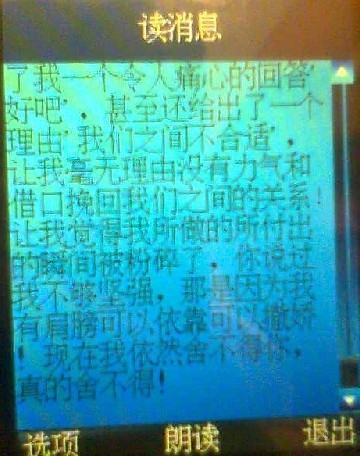 读消息
了我一个令人痛心的回答
好吧，甚至还给出了一个
理由，我们之间不合适，
让我毫无理由没有力气和
借口挽回我们之间的关系！
让我觉得我所做的所付出
的瞬间被粉碎了，你说过
我不够坚强，那是因为我
有肩膀可以依靠可以撒娇
！现在我依然舍不得你，
真的舍不得！
选项 朗读 退出